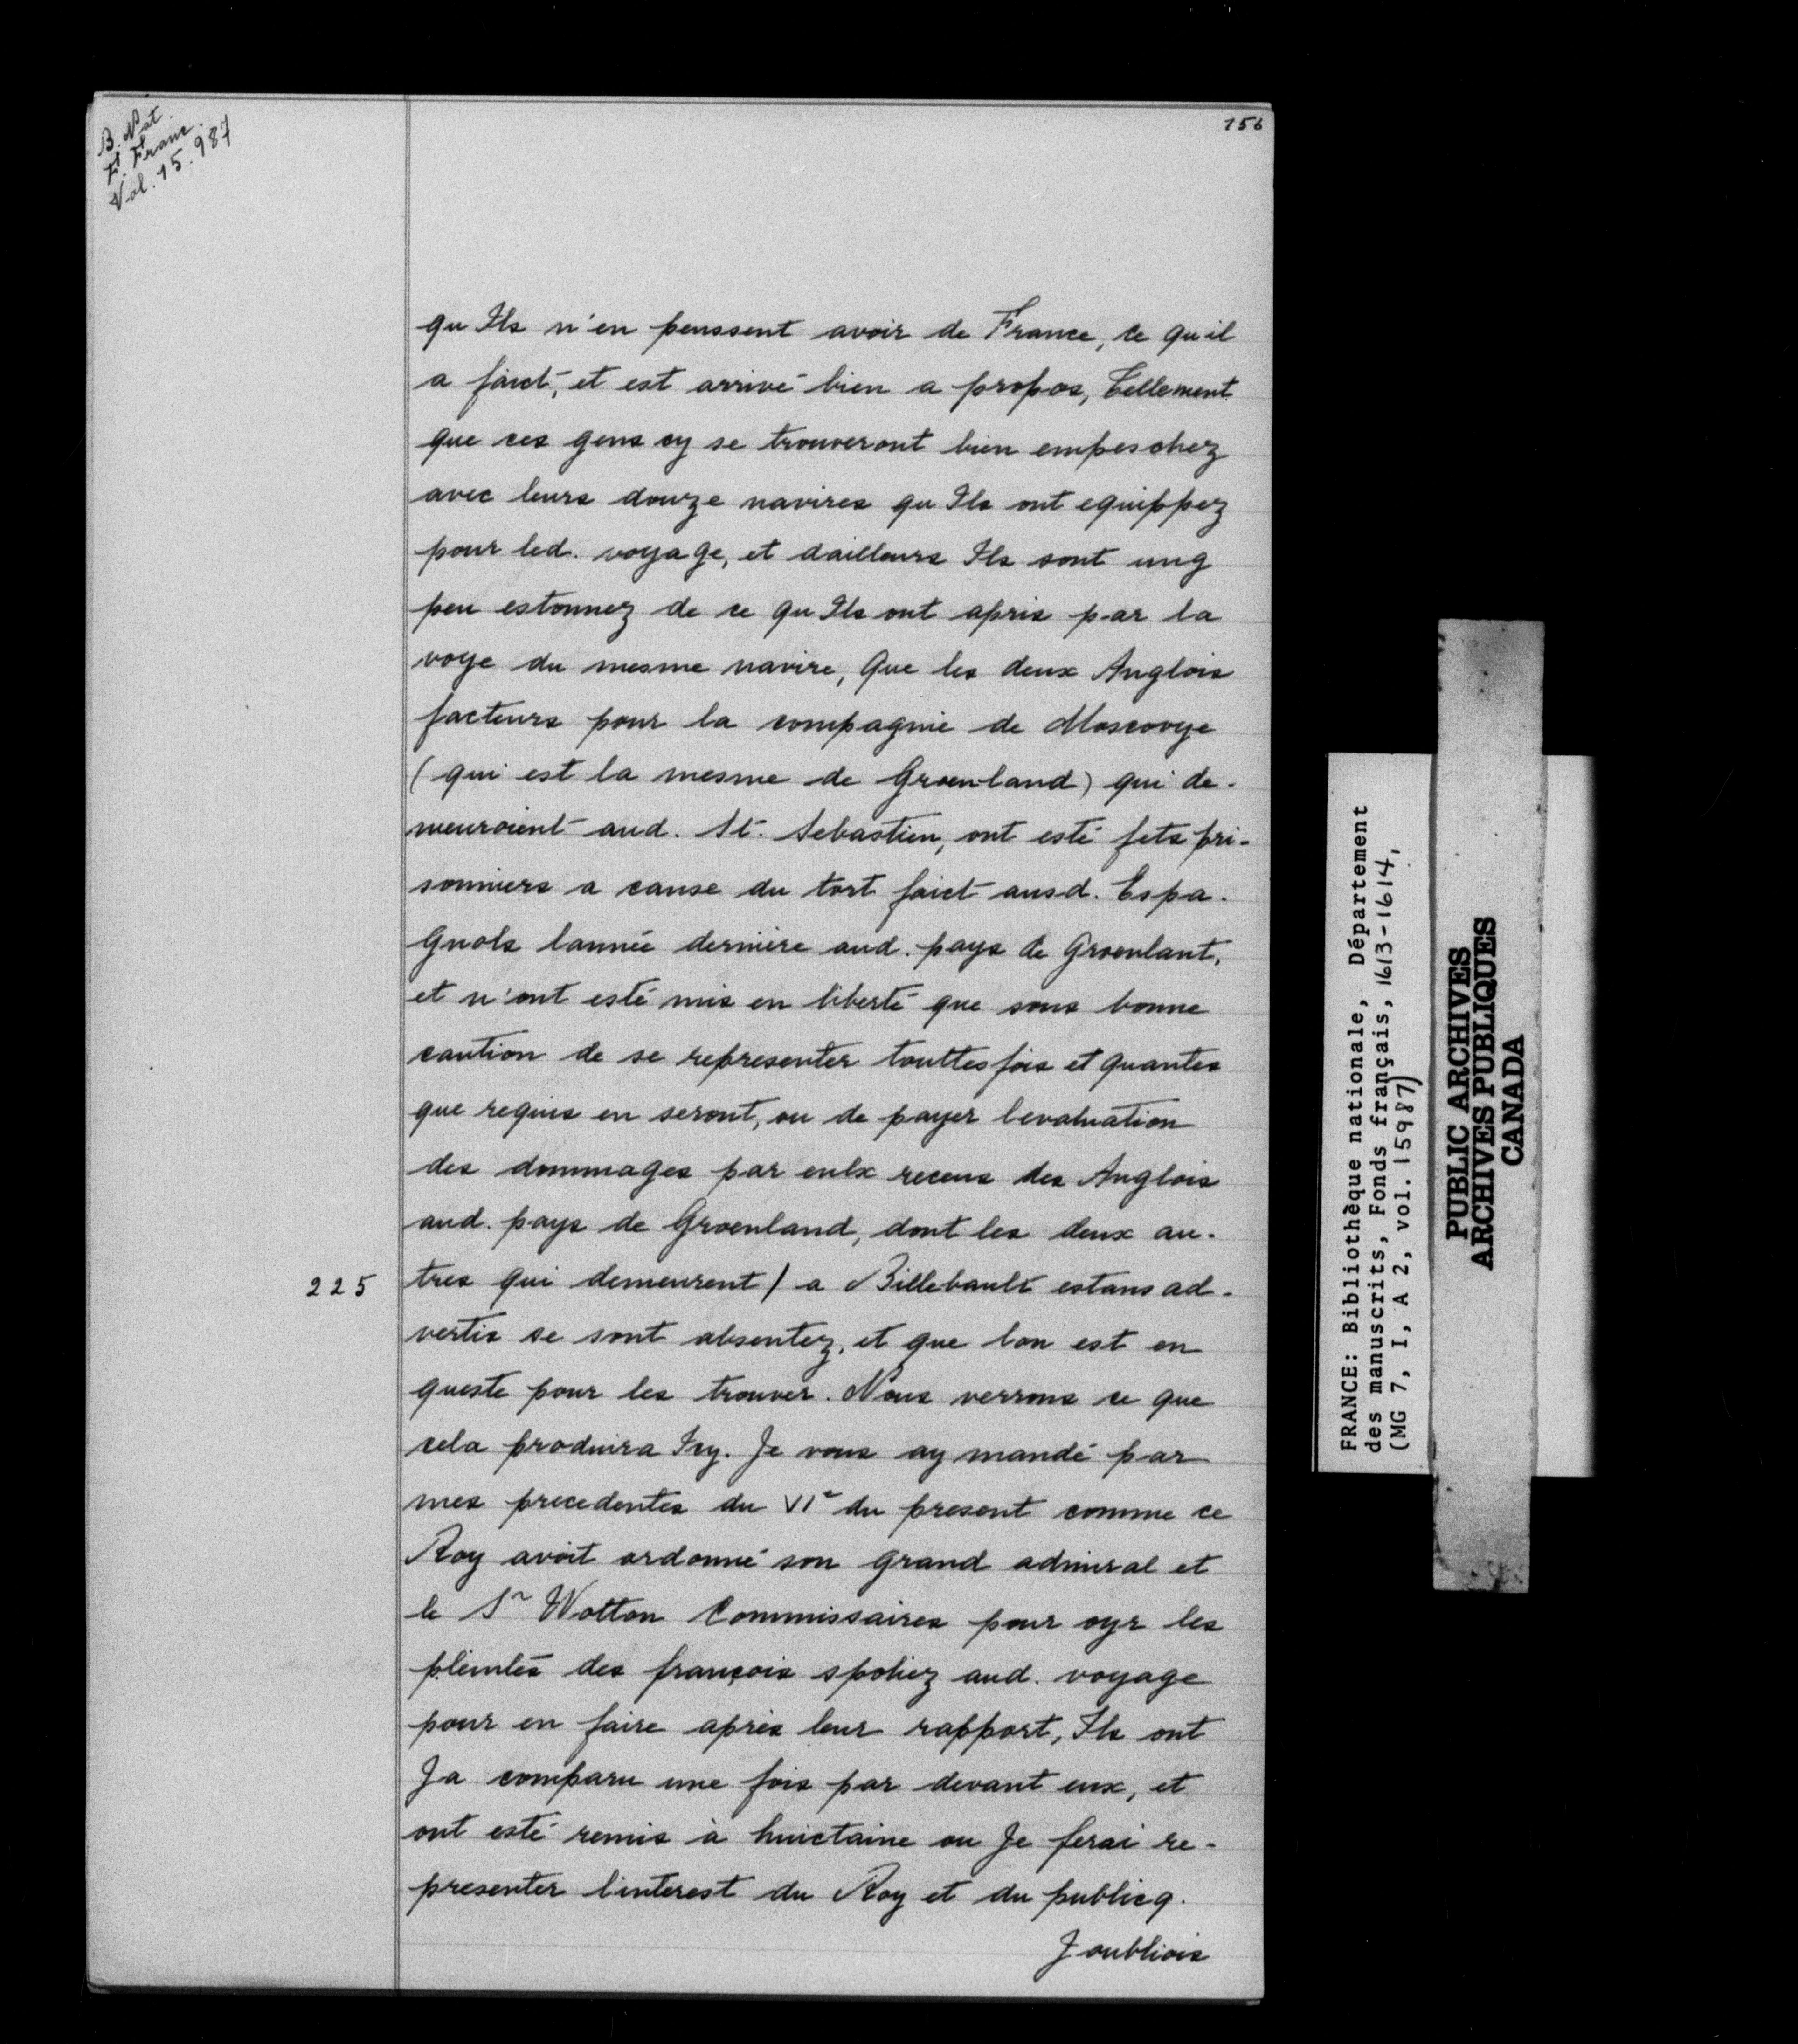 B. Nat.
F. Franc.
Vol. 15.987
156
qu Ils n'en peussent avoir de France, ce qu il
a faict, et est arrivé bien a propos, Tellement
que ces gens cy se trouveront bien empeschez
avec leurs douze navires qu Ils ont equippez
pour led. voyage, et dailleurs Ils sont ung
peu estonnez de ce qu Ils ont apris par la
voye du mesme navire, Que les deux Anglois
facteurs pour la compagnie de Moscovye
(qui est la mesme de Groenland) qui de-
meuroient aud. St. Sebastien, ont esté fets pri-
sonniers a cause du tort faict ausd. Espa-
gnols lannée dernière aud. pays de Groenlant,
et n'ont esté mis en liberté que sous bonne
caution de se representer touttesfois et quantes
que requis en seront, ou de payer levaluation
des dommages par eulx receus des Anglois
aud. pays de Groenland, dont les deux au-
225 tres qui demeurent / a Billebault estans ad-
vertis se sont absentez, et que lon est en
queste pour les trouver. Nous verrons ce que
cela produira Icy. Je vous ay mandé par
mes precedentes du VIe du present comme ce
Roy avoit ordonné son grand admiral et
le Sr Wotton Commissaires pour oyr les
pleintes des françois spoliez aud. voyage
pour en faire après leur rapport, Ils ont
Ja comparu une fois par devant eux, et
ont esté remis à huictaine ou Je ferai re-
presenter linterest du Roy et du publicq.
Joubliois
FRANCE: Bibliothèque nationale, Département
des manuscrits, Fonds français, 1613-1614,
(MG 7, I, A 2, vol. 15987)
PUBLIC ARCHIVES
ARCHIVES PUBLIQUES
CANADA